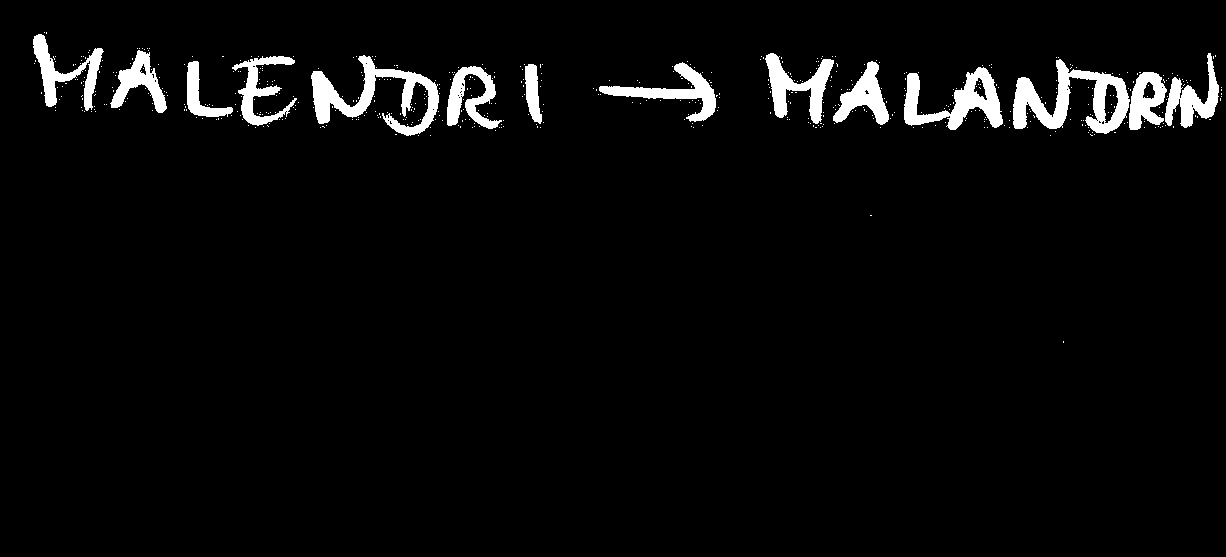 MALENDRI → MALANDRIN